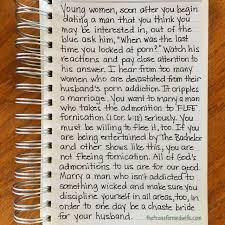 Young women, soon after you begin
dating a man that you think you
may be interested in, out of the
blue ask him, "When was the last
time you looked at porn?" Watch his
reactions and pay close attention to
his answer. I hear from too many
women who are devastated from their
husband's porn addiction. It cripples
a marriage. You want to marry a man
who takes the admonition to FLEE
fornication (1 Cor. 6:18) seriously. You
must be willing to flee it, too. If you
are being entertained by The Bachelor
and other shows like this, you are
not fleeing fornication. All of God's
admonitions to us are for our good.
Marry a man who isn't addicted to
something wicked and make sure you
discipline yourself in all areas, too, in
order to one day be a chaste bride
for your husband.
thetransformedwife.com